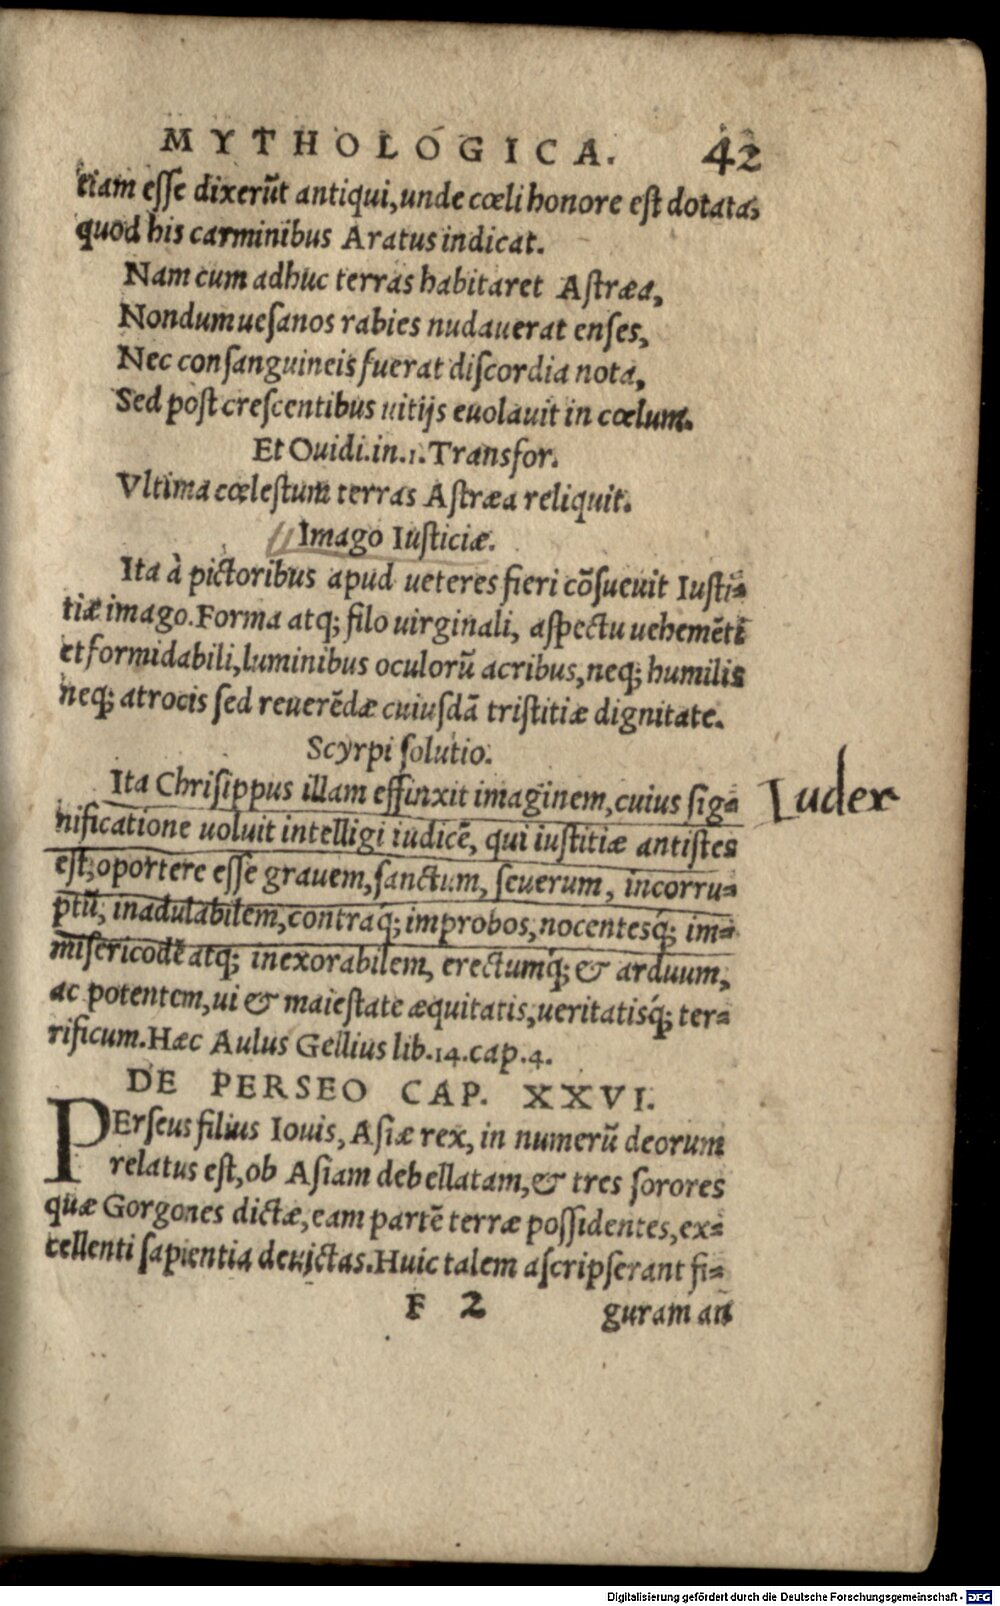 MYTHOLOGICA. 42
tiam eſſe dixerũt antiqui, unde cœli honore eſt dotata,
quod his carminibus Aratus indicat.
Nam cum adhuc terras habitaret Aſtræa,
Nondum ueſanos rabies nudauerat enſes,
Nec conſanguineis fuerat diſcordia nota,
Sed poſt creſcentibus uitijs euolauit in cœlum.
Et Ouidi.in.1.Transfor.
Vltima cœleſtum terras Aſtræa reliquit.
Imago Iuſticiæ.
Ita à pictoribus apud ueteres fieri cõſueuit Iuſti-
tiæ imago. Forma atq; filo uirginali, aſpectu uehemẽti
et formidabili, luminibus oculorũ acribus, neq; humilis
neq; atrocis ſed reuerẽdæ cuiuſdã triſtitiæ dignitate.
Scyrpi ſolutio.
Ita Chriſippus illam effinxit imaginem, cuius ſig-
nificatione uoluit intelligi iudicẽ, qui iuſtitiæ antiſtes
Iudex
eſt, oportere eſſe grauem, ſanctum, ſeuerum, incorru-
ptũ, inadulabilem, contraq́; improbos, nocentesq́; im-
miſericodẽ atq; inexorabilem, erectumq́; & arduum,
ac potentem, ui & maieſtate æquitatis, ueritatisq́; ter-
rificum. Hæc Aulus Gellius lib.14.cap.4.
DE PERSEO CAP. XXVI.
PErſeus filius Iouis, Aſiæ rex, in numerũ deorum
relatus eſt, ob Aſiam debellatam, & tres ſorores
quæ Gorgones dictæ, eam partẽ terræ poſſidentes, ex-
cellenti ſapientia deuictas. Huic talem aſcripſerant fi-
F 2 guram an
Digitalisierung gefördert durch die Deutsche Forschungsgemeinschaft - DFG